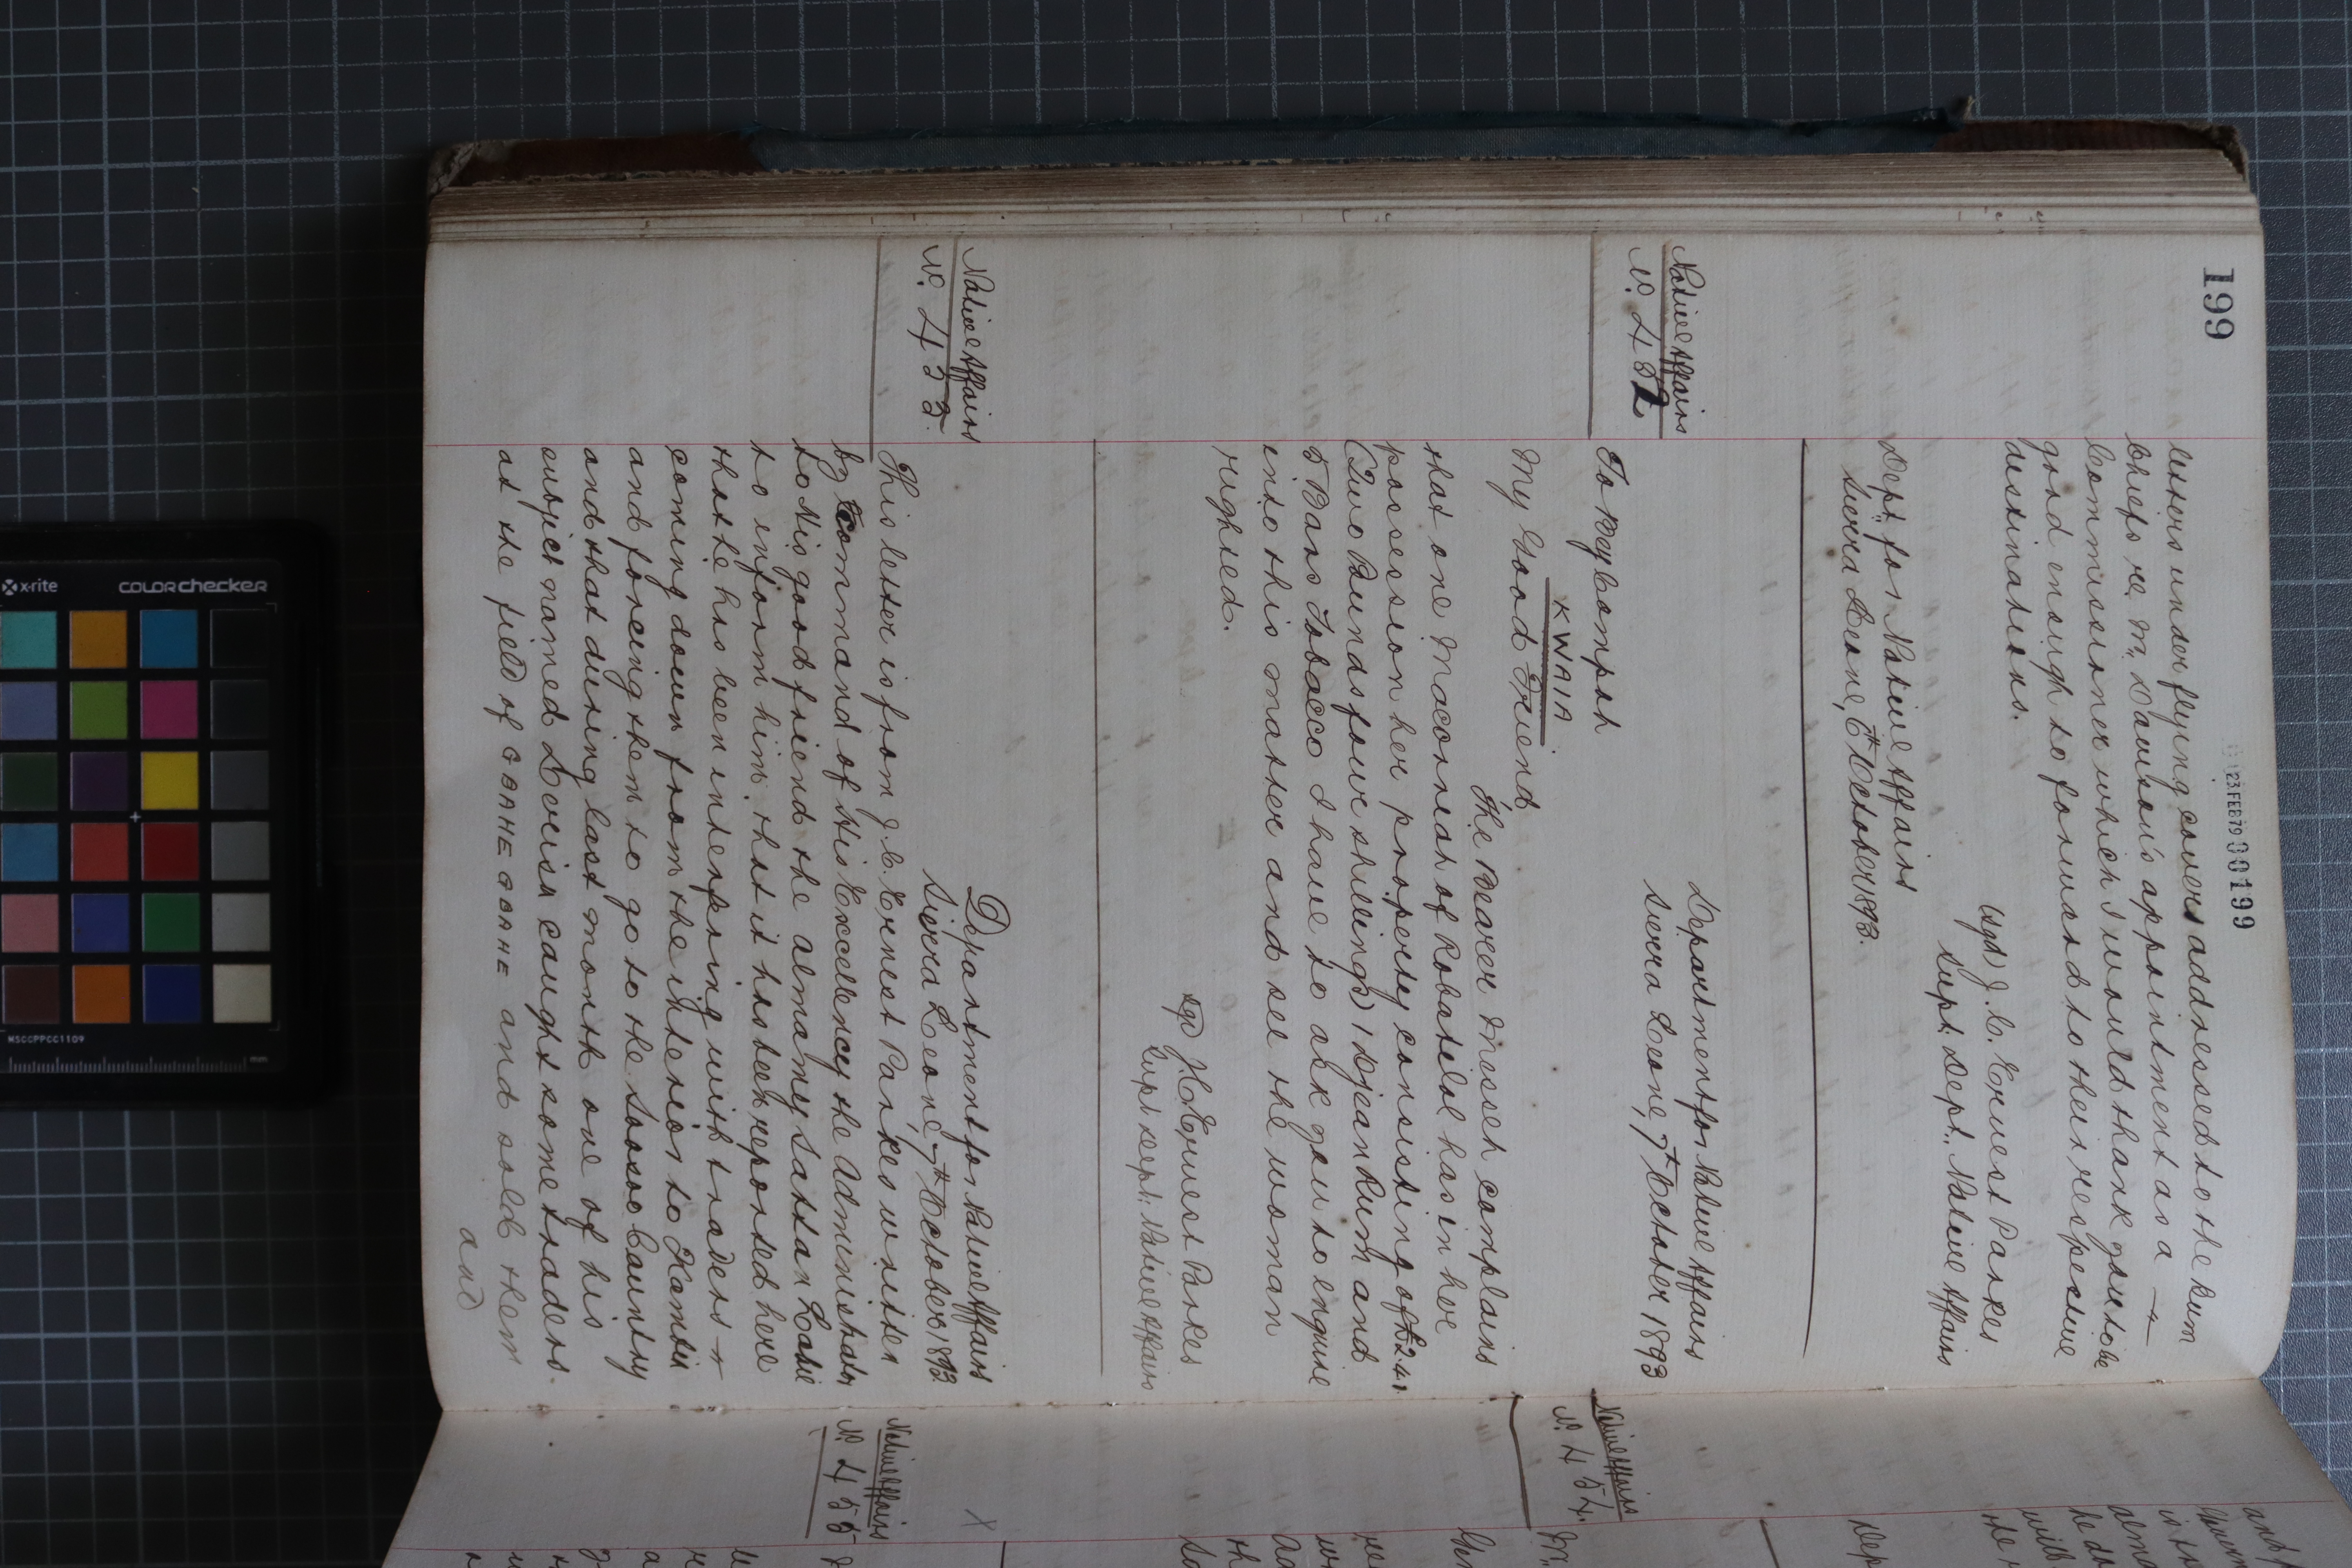 199
23 FEB 79 000199
letters under flying covers addressed to the kum
Chiefs re Mr. Dawson's appointment as a
Commissioner which I would thank you to be
good enough to forward to their respective
destinations.
(Sgd) J. C. Ernest Parkes
Supt. Dept. Native Affairs
Dept. for Native Affairs
Sierra Leone, 6th October 1893.
Native Affairs
No. 452
Department for Native Affairs
Sierra Leone, 7th October 1893
To Bey Compah
KWAIA
My Good Friend
The Bearer Messeh complains
that one Maconneah of Robatilol has in her
possession her property consisting of £2.4.
(Two Pounds four shillings) 1 Djean Rum and
5 Bars Tobacco I have to ask you to enquire
into this matter and see the woman
righted.
Sgd J. C. Ernest Parkes
Supt. Dept. Native Affairs
Native Affairs
No. 453
Department for Native Affairs
Sierra Leone, 7th October 1893.
This letter is from J. C. Ernest Parkes written
by Command of His Excellency the Administrator
to His good friend the Almamy Sattan Lahie
to inform him that it has been reported here
that he has been interfering with traders
coming down from the interior to Kambia
and forcing them to go to the Soosoo Country
and that during last month one of his
subject named Leveisa caught some traders.
at the field of GBAHE GOAHE and sold them
and
Native Affairs
No. 454.
Native Affairs
No. 455
X